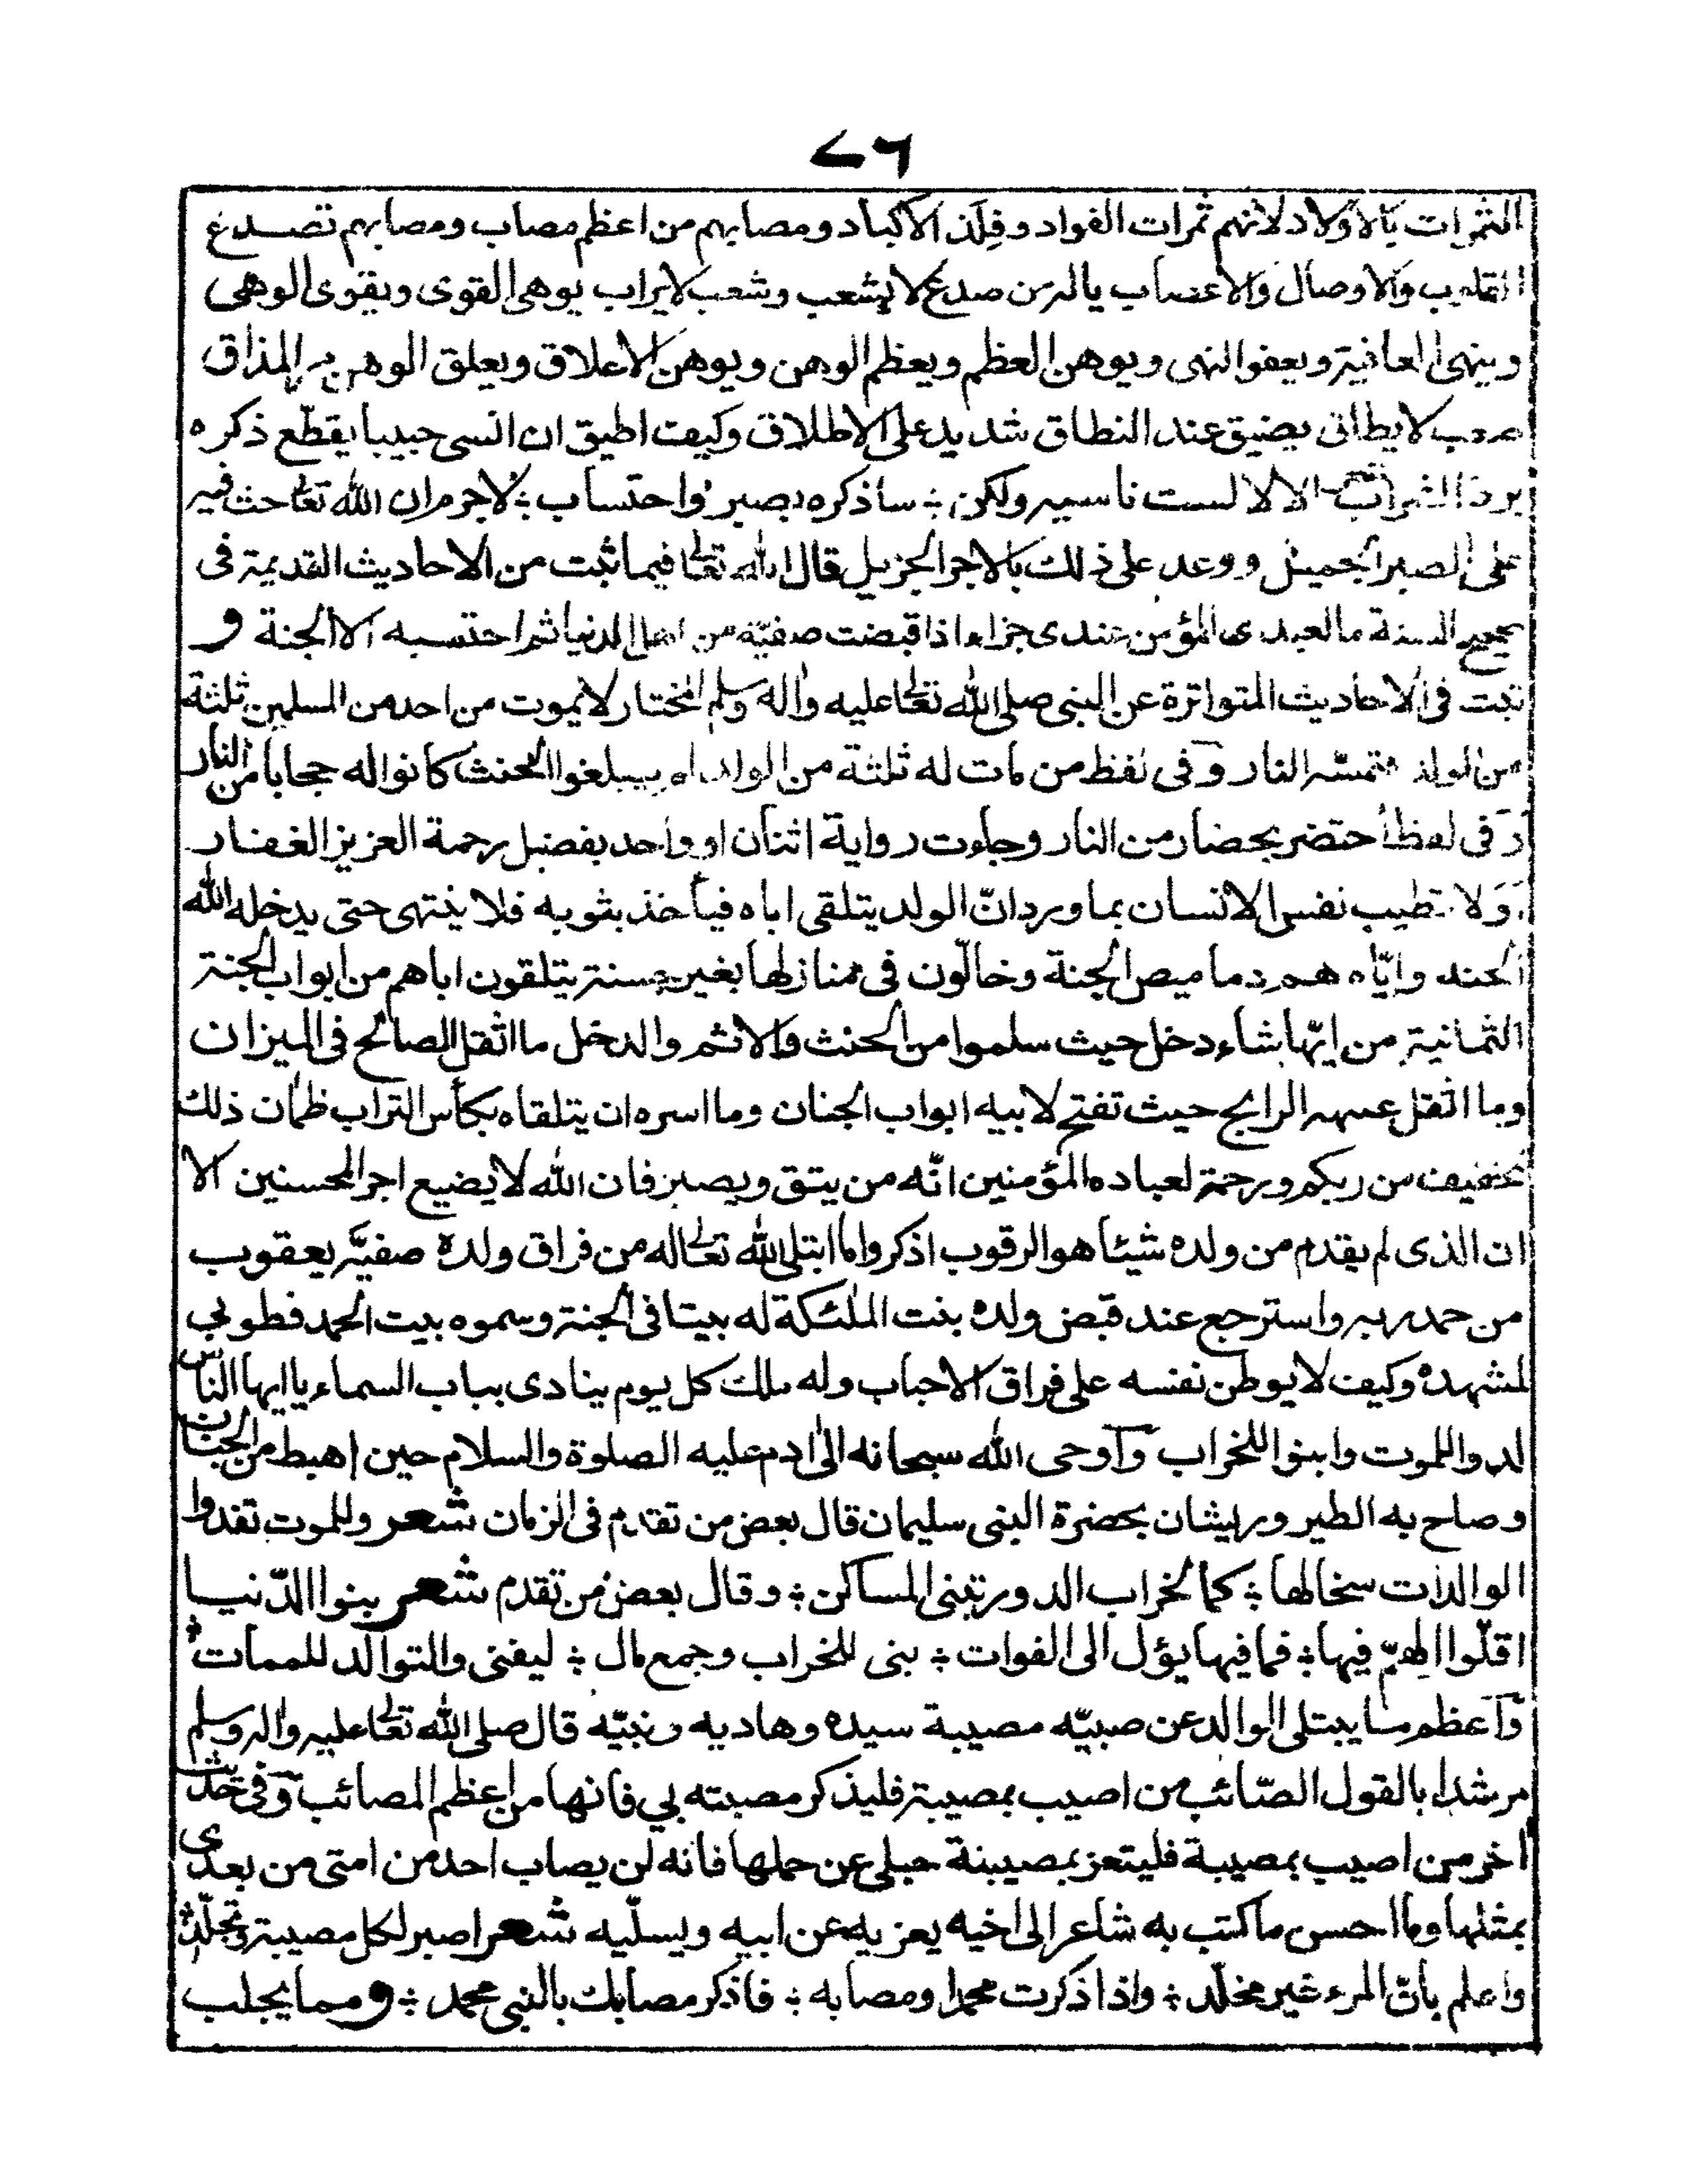 ٧٦
الثمرات بالاولاد لانهم ثمرات الفواد وفلذ الاكباد ومصابهم من اعظم مصاب ومصابهم تصدع
القلوب والاوصال والاعصاب ياله من صدع لا يشعب وشعب لايراب يوهى القوى ويقوى الوهى
وينهى العافية ويعفو النهى ويوهن العظم ويعظم الوهن ويوهن الاعلاق ويعلق الوهن مر المذاق
صعب لايطاق يضيق عند النطاق شديد على الاطلاق وكيف اطيق ان انسى حبيبا يقطع ذكره
برد الشراب الا لا لست ناسيه ولكن ؞ ساذكره بصبر واحتساب ؞ لاجرم ان الله تعالى حث فيه
على الصبر الجميل ووعد على ذلك بالاجر الجزيل قال الله تعالى فيما ثبت من الاحاديث القديمة فى
صحيح السنة ما لعبدى المؤمن عندى جزاء اذا قبضت صفيّه من اهل الدنيا ثم احتسبه الا الجنة و
ثبت فى الاحاديث المتواترة عن النبى صلى الله تعالى عليه واله وسلم المختار لايموت من احد من المسلمين ثلثة
من الولد فتمسّه النار وفى لفظ من مات له ثلثة من الولد لم يبلغوا الحنث كانوا له حجابا من النار
وفى لفظ احتضر بحضار من النار وجاءت رواية اثنان او واحد بفضل رحمة العزيز الغفار
اولا تطيب نفس الانسان بما ورد انّ الولد يتلقى اباه فيأخذ بثوبه فلا ينتهى حتى يدخله الله
الجنه وايّاه هم دعاميص الجنة وخالّون فى منازلها بغير يتلقون اباهم من ابواب الجنة
الثمانية من ايّها شاء دخل حيث سلموا من الحنث والاثم والدخل ما اثقل الصالح فى الميزان
وما اثقل الرابح حيث تفتح لابيه ابواب الجنان وما اسره ان يتلقاه بكأس التراب ظمان ذلك
تخفيف من ربكم ورحمة لعباده المؤمنين انّه من يتق ويصبر فان الله لا يضيع اجر المحسنين الا
ان الذى لم يقدم من ولده شيئا هو الرقوب اذكروا ما ابتلى الله تعالى له من فراق ولده صفيّه يعقوب
من حمد ربه واسترجع عند قبض ولده بنت الملئكة له بيتا فى الجنة وسموه بيت الحمد فطوبى
لمشهده وكيف لا يوطن نفسه على فراق الاحباب وله ملك كل يوم ينادى بباب السماء يا ايها الناس
لدوا للموت وابنوا للخراب وآوحى الله سبحانه الى ادم عليه الصلوة والسلام حين اهبط من الجنان
وصاح به الطير وريشان بحضرة النبى سليمان قال بعض من تقدم فى الزمان شعر وللموت تغدوا
الوالدات سخالها ؞ كما لخراب الدور تبنى المساكن ؞ وقال بعض من تقدم شعر بنوا الدّنيا
اقلّوا الهمّ فيها ؞ فما فيها يؤل الى الفوات ؞ بنى للخراب وجمع مال ؞ ليفنى والتوالد للممات ؞
وآعظم ما يبتلى الوالد عن صبيّه مصيبة سيده وهاديه ونبيّه قال صلى الله تعالى عليه واله وسلم
مرشدا بالقول الصّائب من اصيب بمصيبة فليذكر مصيبته بي فانها من اعظم المصائب وفى حديث
اخر من اصيب بمصيبة فليتعز بمصيبنة حبلى عن حملها فانه لن يصاب احد من امتى من بعدى
بمثلها وما احسن ما كتب به شاعر الى اخيه يعزيه عن ابيه ويسلّيه شعر اصبر لكل مصيبة وتجلّد ؞
واعلم بانّ المرء غير مخلّد ؞ واذا ذكرت محمدا ومصابه ؞ فاذكر مصابك بالنبى محمد ؞ ومما يجلب